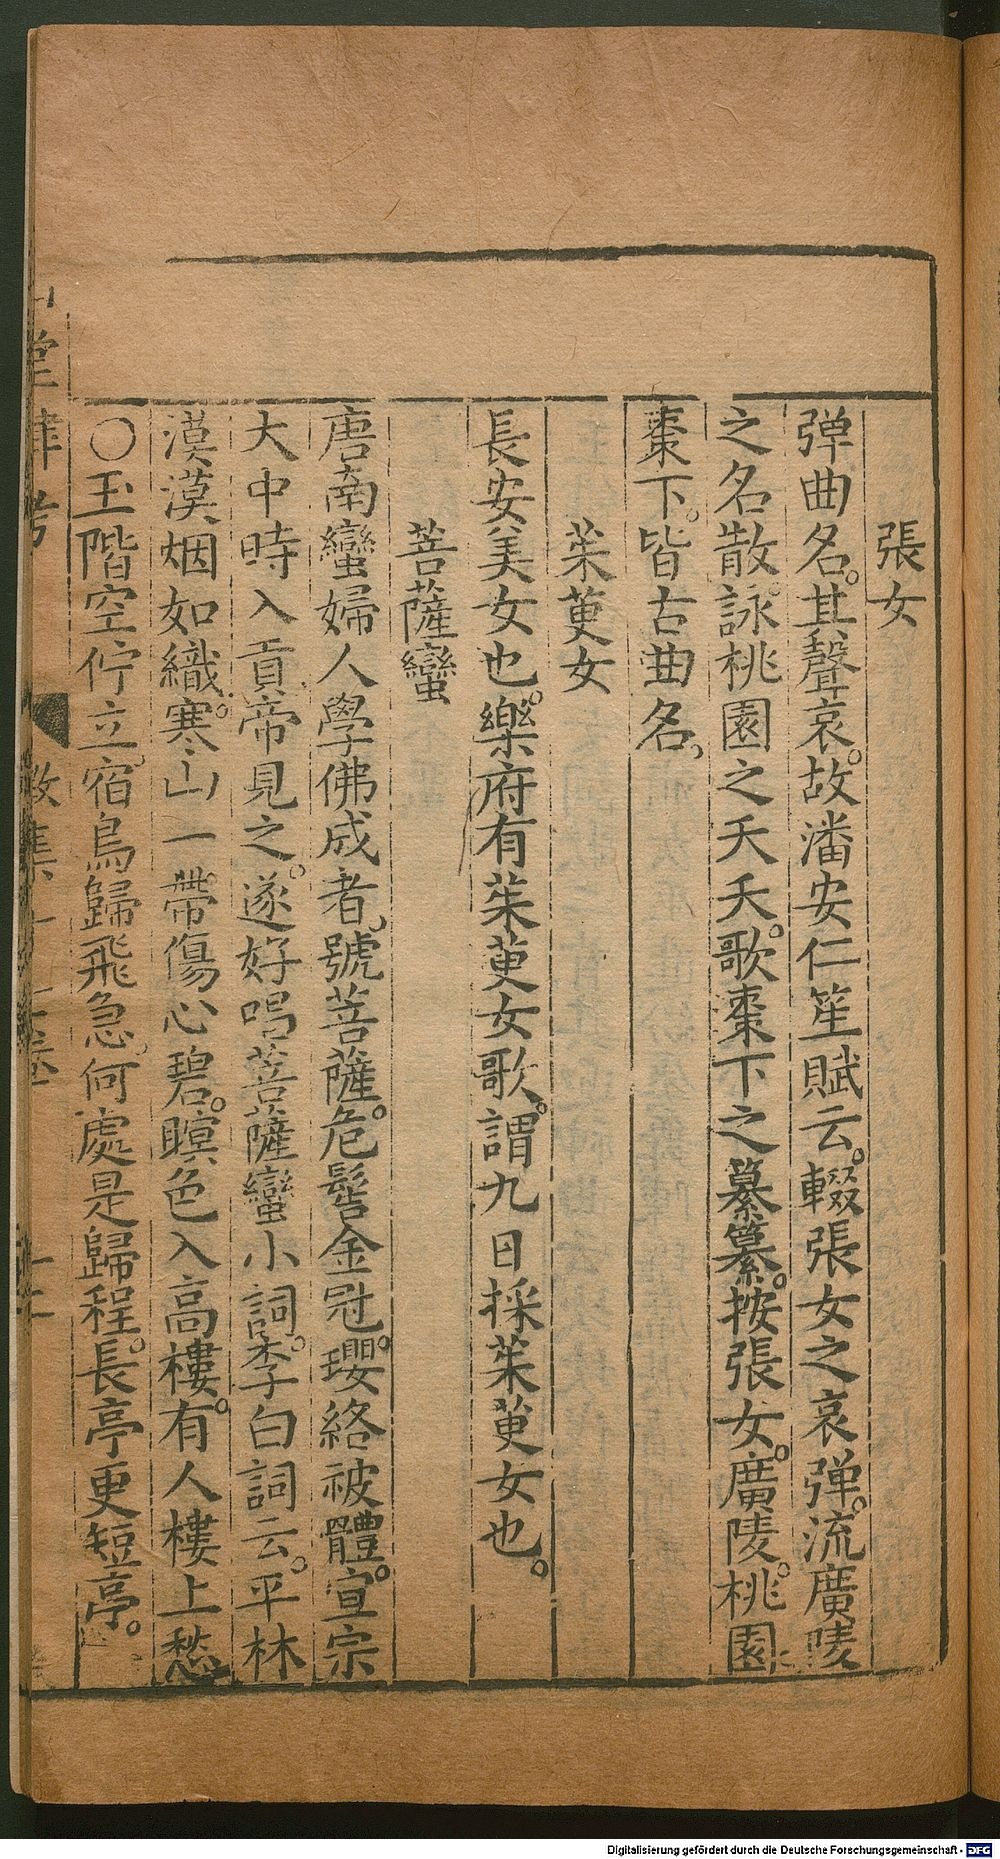 張女
彈曲名。其聲哀。故潘安仁笙賦云。輟張女之哀彈。流廣陵
之名散。詠桃園之夭夭。歌棗下之纂纂。按張女。廣陵。桃園
棗下。皆古曲名。
茱萸女
長安美女也。樂府有茱萸女歌。謂九日採茱萸女也。
菩薩蠻
唐南蠻婦人學佛成者。號菩薩。危髻金冠。瓔絡被體。宣宗
大中時入貢。帝見之。遂好唱菩薩蠻小詞。李白詞云。平林
漠漠烟如織。寒山一帶傷心碧。瞑色入高樓。有人樓上愁
○玉階空佇立。宿鳥歸飛急。何處是歸程。長亭更短亭。
堂肆考
Digitalisierung gefördert durch die Deutsche Forschungsgemeinschaft - DFG